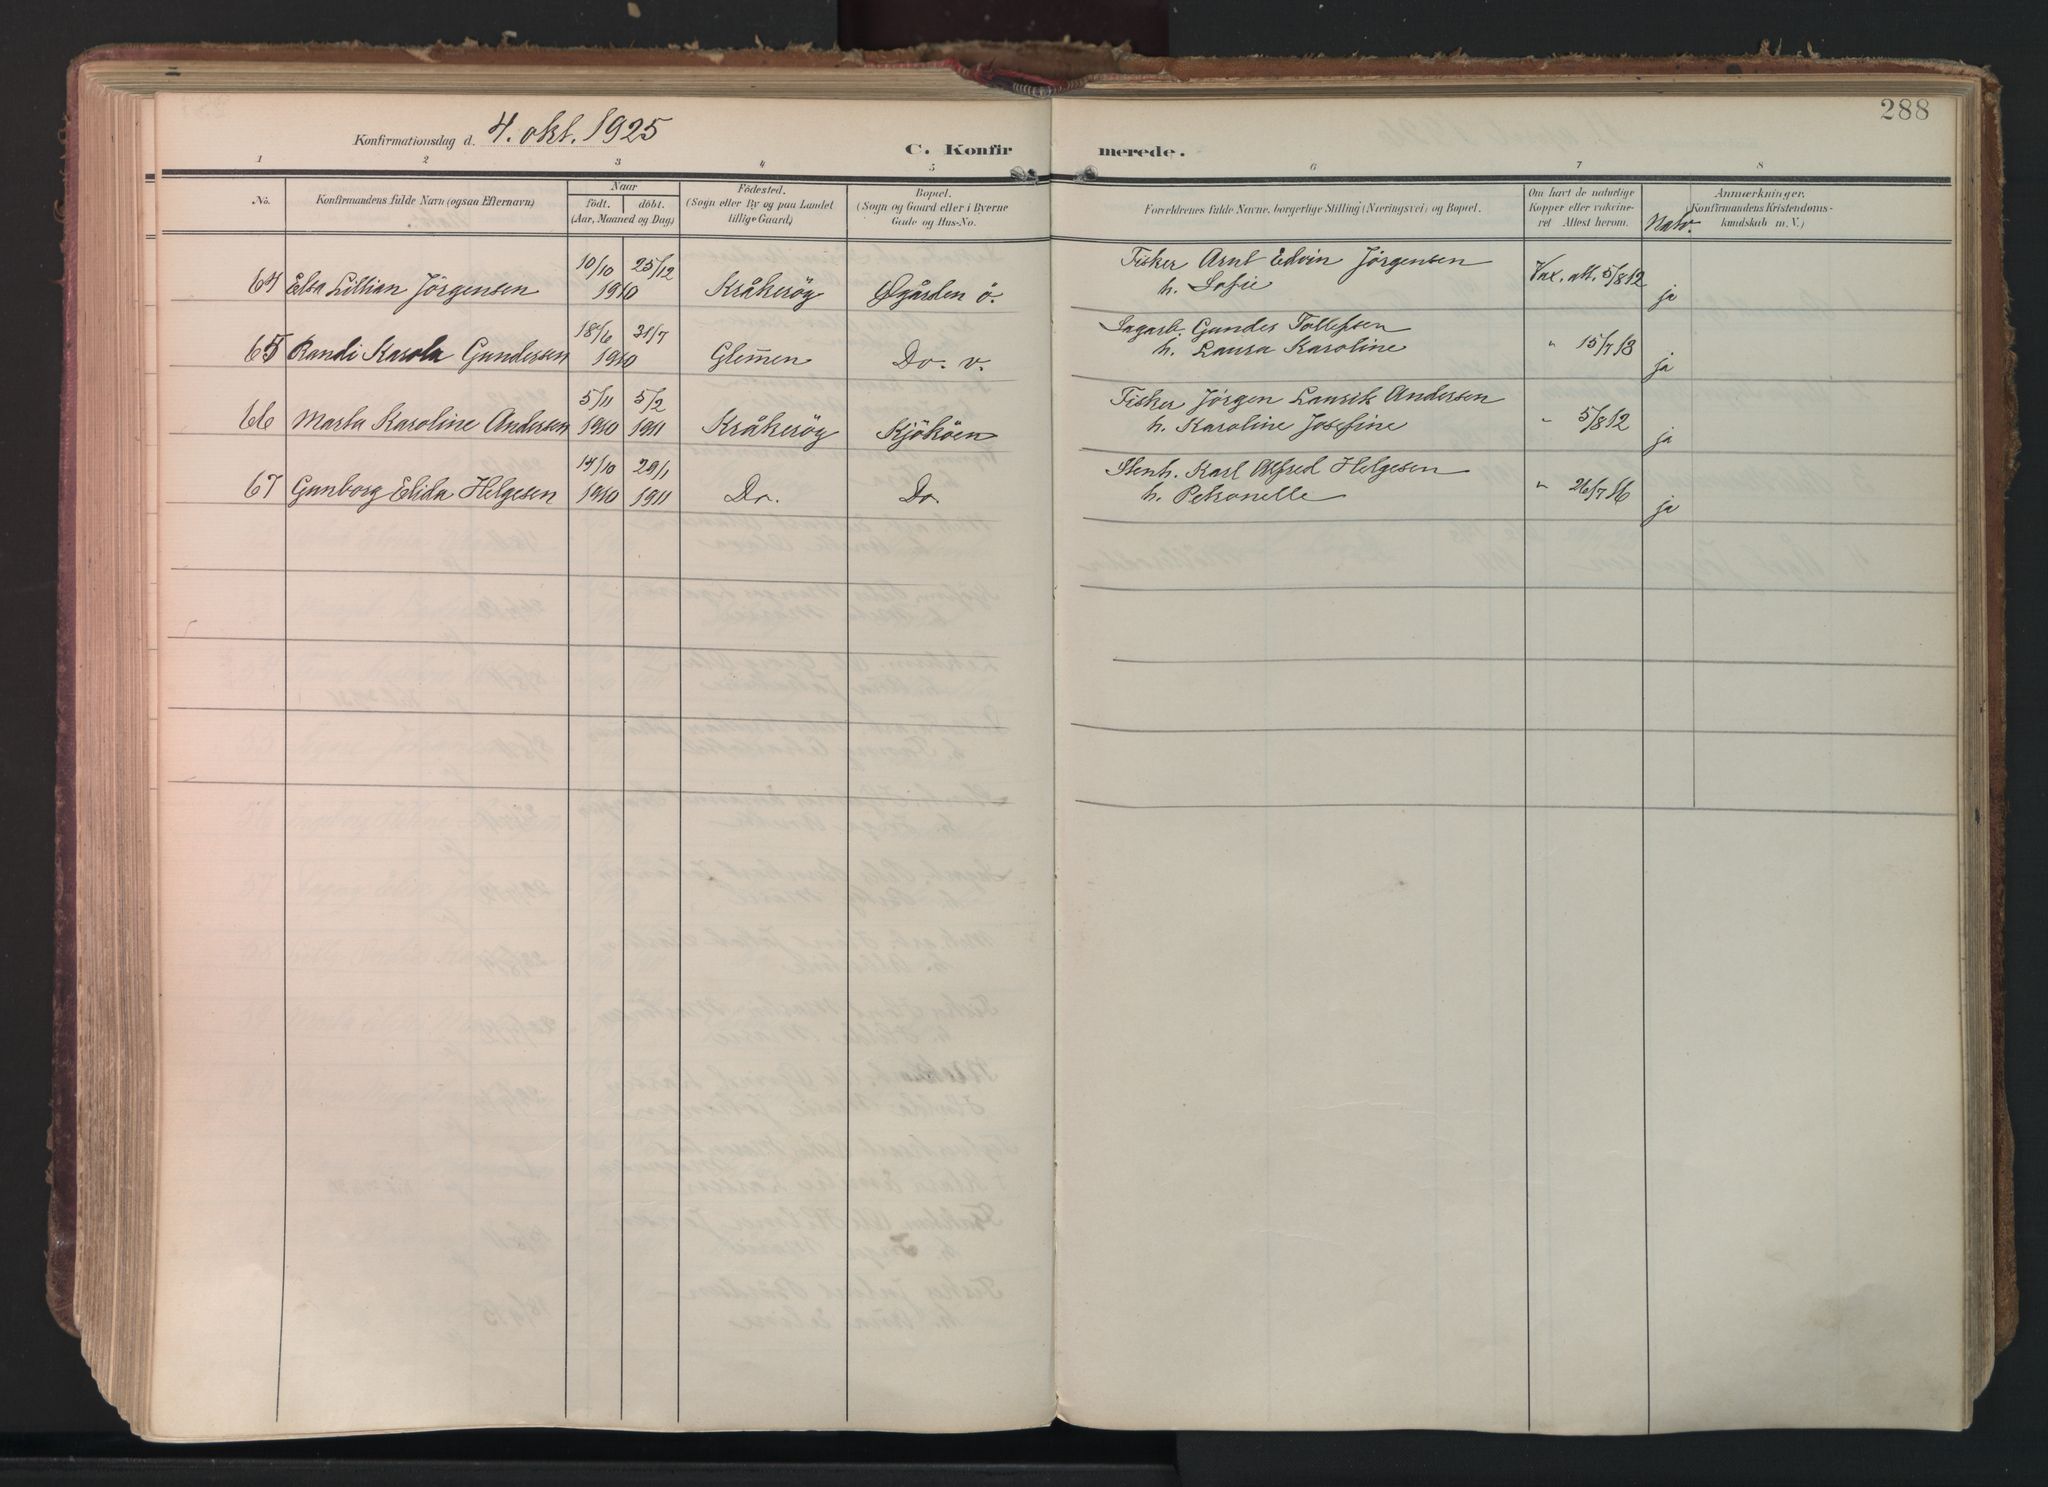 288
Konfirmationsdag d. 4. okt. 1925
C. Konfirmerede.
1 2 3 4 5 6 7 8
No. Konfirmandens fulde Navn (ogsaa Efternavn) Naar født. døbt. (Aar, Maaned og Dag) Fødested. (Sogn eller By og paa Landet tillige Gaard.) Bopæl. (Sogn og Gaard eller i Byerne Gade og Hus-No. Forældrenes fulde Navne, borgerlige Stilling (Næringsvei) og Bopæl. Om havt de naturlige Kopper eller vakcineret. Attest herom. Natv. Anmærkninger. (Konfirmandens Kristendomskundskab m. V.)
64 Elsa Lillian Jörgensen 10/10 1910 25/12 Kråkeröy Øgården ö. Fisker Arnt Edvin Jörgensen Vax. att. 5/8 12 ja
h. Sofie
65 Randi Karola Gundersen 18/6 1910 31/7 Glemmen Do. v. Sagarb. Gunder Tollefsen " 15/7 13 ja
h. Laura Karoline
66 Marta Karoline Andersen 5/11 1910 5/2 1911 Kråkeröy Kjököen Fisker Jörgen Laurits Andersen " 5/8 12 ja
h. Karoline Josefine
67 Gunborg Elida Helgesen 14/10 1910 29/1 1911 Do. Do Stenh. Karl Alfred Helgesen " 26/7 16 ja
h. Petronelle